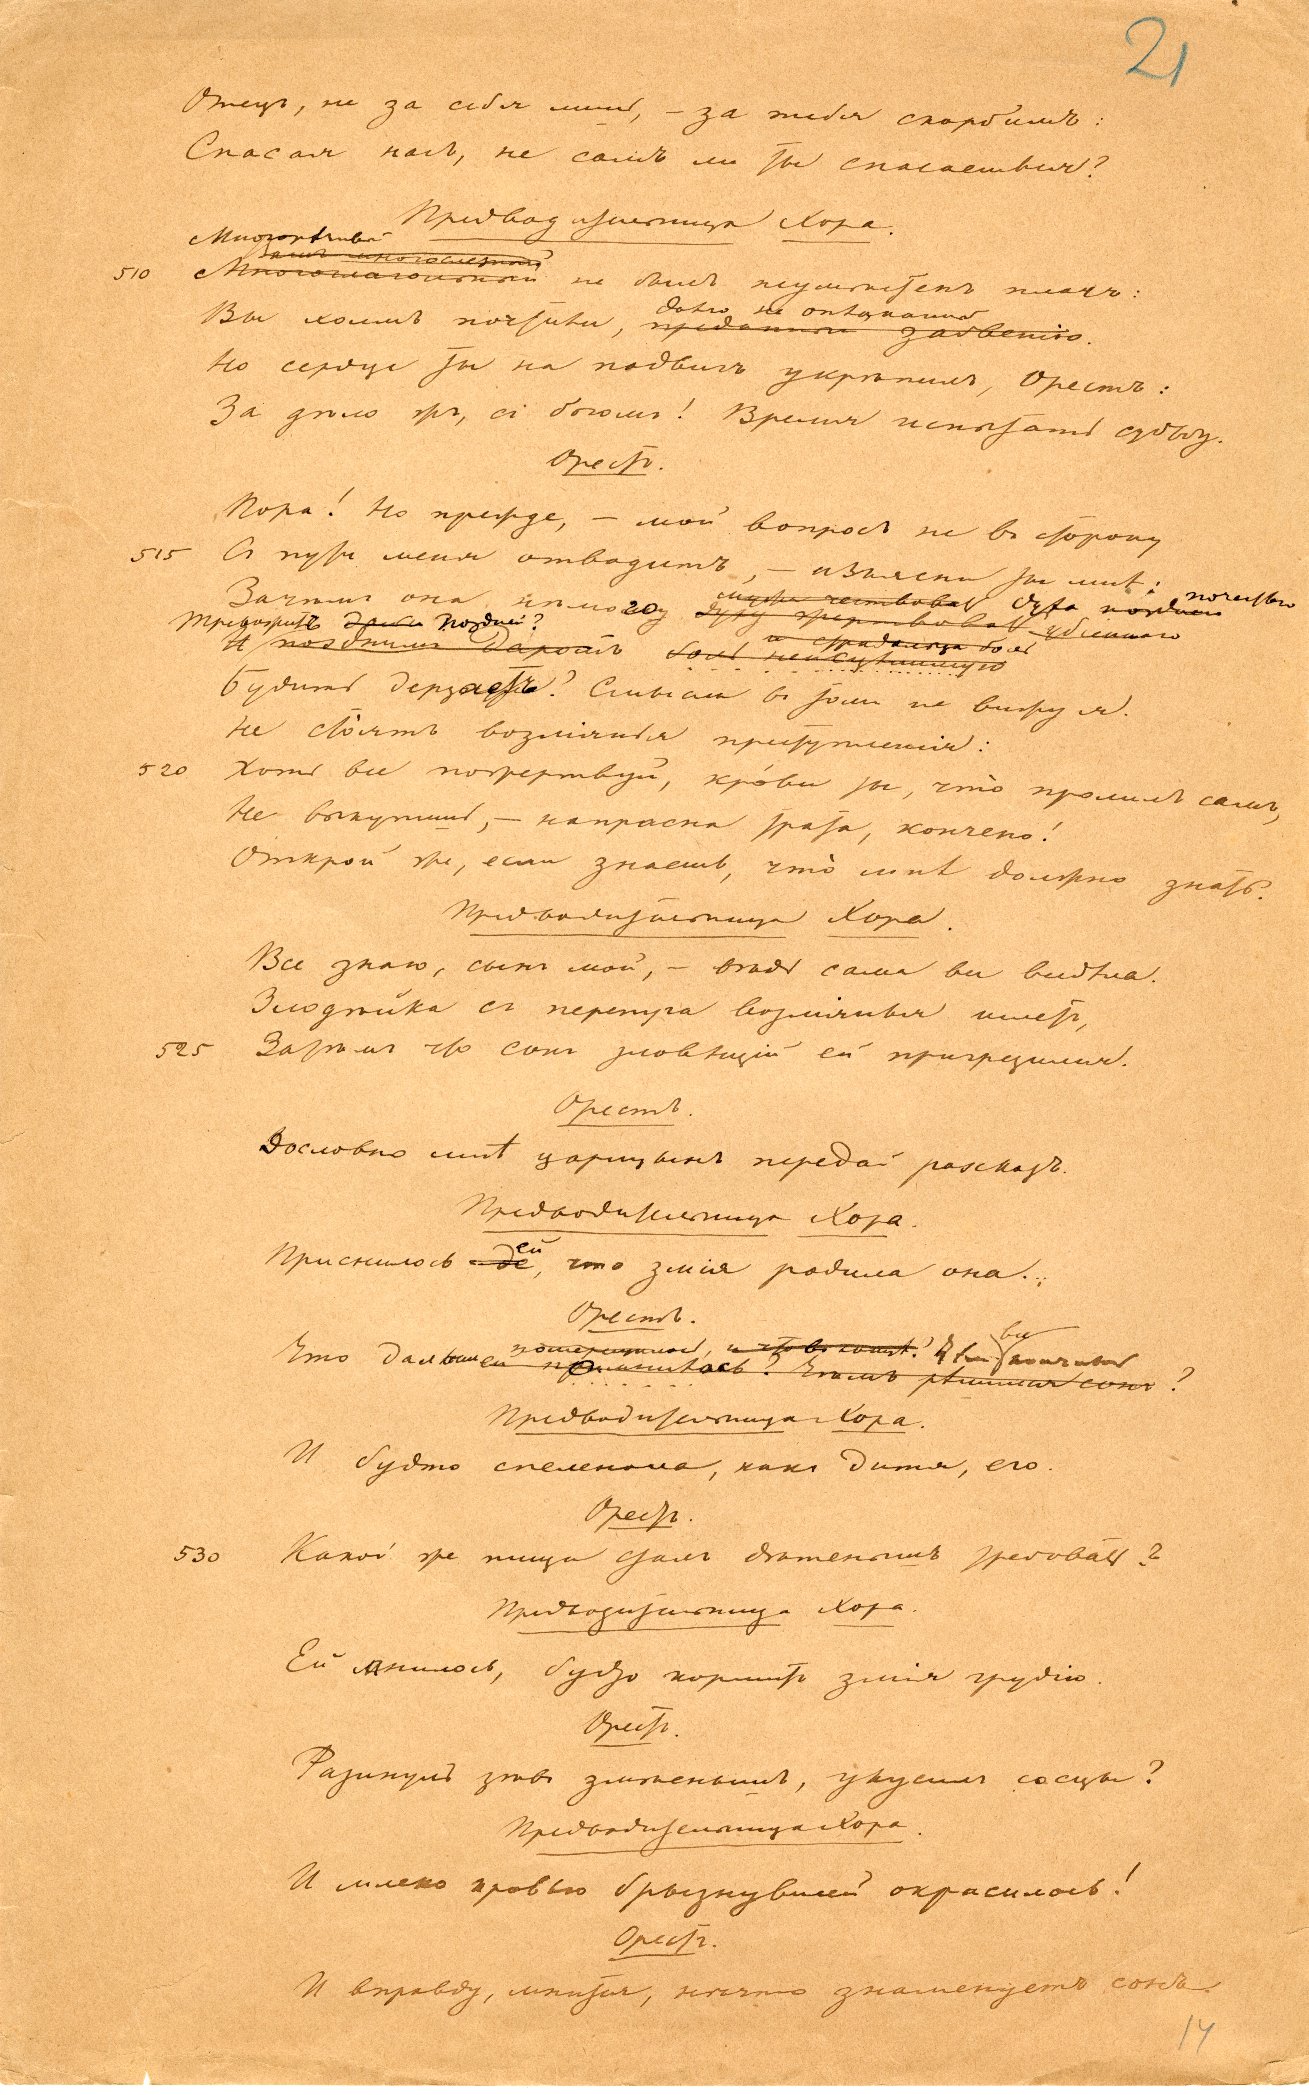 21
Отецъ, не за себя лишь, – за тебя скорбимъ:
Спасая насъ, не самъ ли ты спасаешься?
Предводительница Хора.
Многорѣчивый
510 Многоглагольный не былъ неумѣстенъ плачъ:
давно не оплаканный
Вы холмъ почтили, преданный забвенію.
Но сердце ты на подвигъ укрѣпилъ, Орестъ:
За дѣло жъ, съ богомъ! Время испытать судьбу.
Орестъ.
Пора! Но прежде, – мой вопросъ не въ сторону
515 Съ пути меня отводитъ, – изъясни ты мнѣ:
Зачѣмъ она
поздней?
И позднимъ даромъ боль неисцѣлимую
Будить дерзаетъ? Смысла въ томъ не вижу я.
Не стоятъ возліянья преступленія:
520 Хоть все пожертвуй, кро́ви ты, что̀ пролилъ самъ,
Не выкупишь, – напрасна трата, кончено!
Открой же, если знаешь, что̀ мнѣ должно знать.
Предводительница Хора.
Все знаю, сынъ мой, – вѣдь сама все видѣла.
Злодѣйка съ перепуга возліянья шлетъ,
525 Затѣмъ что сонъ зловѣщій ей пригрезился.
Орестъ.
Дословно мнѣ царицынъ передай разсказъ.
Предводительница Хора.
ей
Приснилось де, что змія родила она...
Орестъ.
Что дальше ей примнилось? Чѣмъ рѣшился сонъ?
Предводительница Хора.
И будто спеленала, какъ дитя, его.
Орестъ.
530 Какой же пищи сталъ дѣтенышъ требовать?
Предводительница Хора.
Ей мнилось, будто кормитъ змія грудію.
Орестъ.
Разинулъ зѣвъ змѣенышъ, укусилъ сосцы?
Предводительница Хора.
И млеко кровью брызнувшей окрасилось!
Орестъ.
И вправду, мнится, нѣчто знаменуетъ сонъ.
14